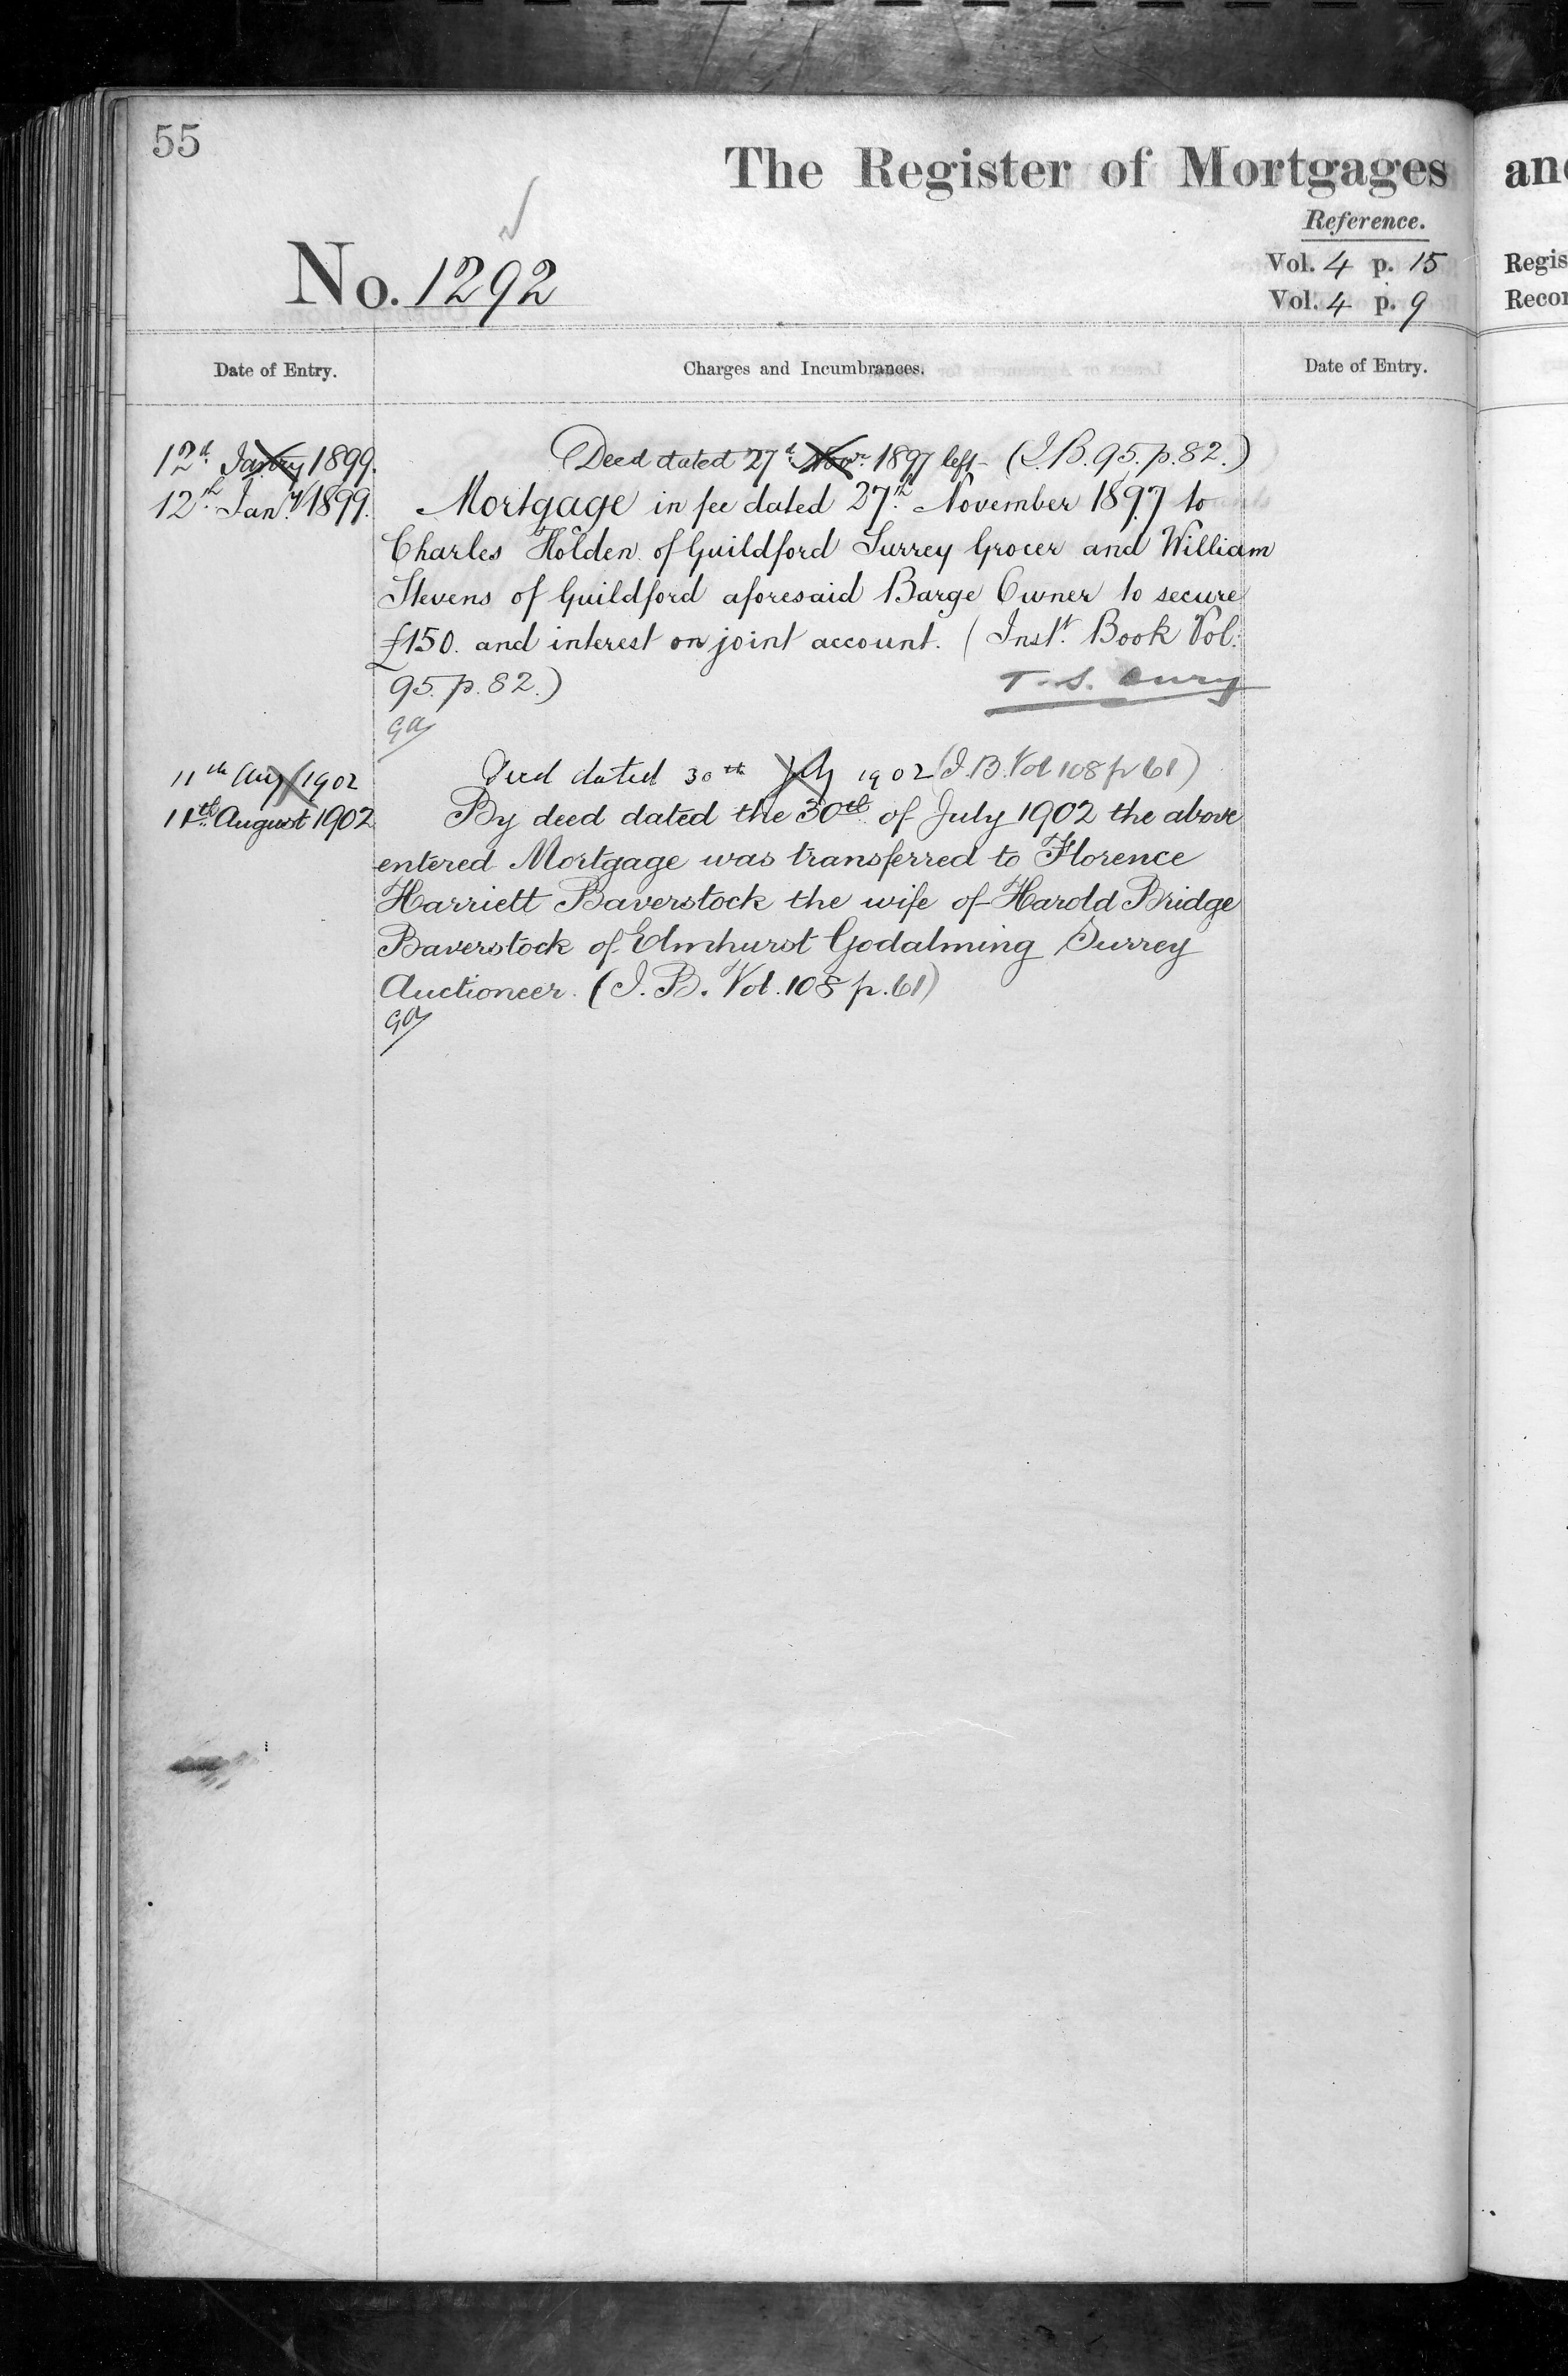 55
The Register of Mortgages
Reference.
No. 1292
Vol. 4 p. 15
Vol. 4 p. 9
Date of Entry.
Charges and Incumbrances.
Date of Entry.
12th Janry 1899.
Deed dated 27th Novr. 1897 left - (I.B. 95. p. 82.)
12th Jany 1899.
Mortgage in fee dated 27th November 1897 to
Charles Holden of Guildford Surrey Grocer and William
Stevens of Guildford aforesaid Barge Owner to secure
£150. and interest on joint account. (Instt. Book Vol.
95. p. 82.)
T. S. Curry
11th Aug 1902
Deed dated 30th July 1902 (I.B. Vol 108 p 61)
11th August 1902
By deed dated the 30th of July 1902 the above
entered Mortgage was transferred to Florence
Harriett Baverstock the wife of Harold Bridge
Baverstock of Elmhurst Godalming Surrey
Auctioneer. (I. B. Vol. 108 p. 61)
an
Regis
Recor